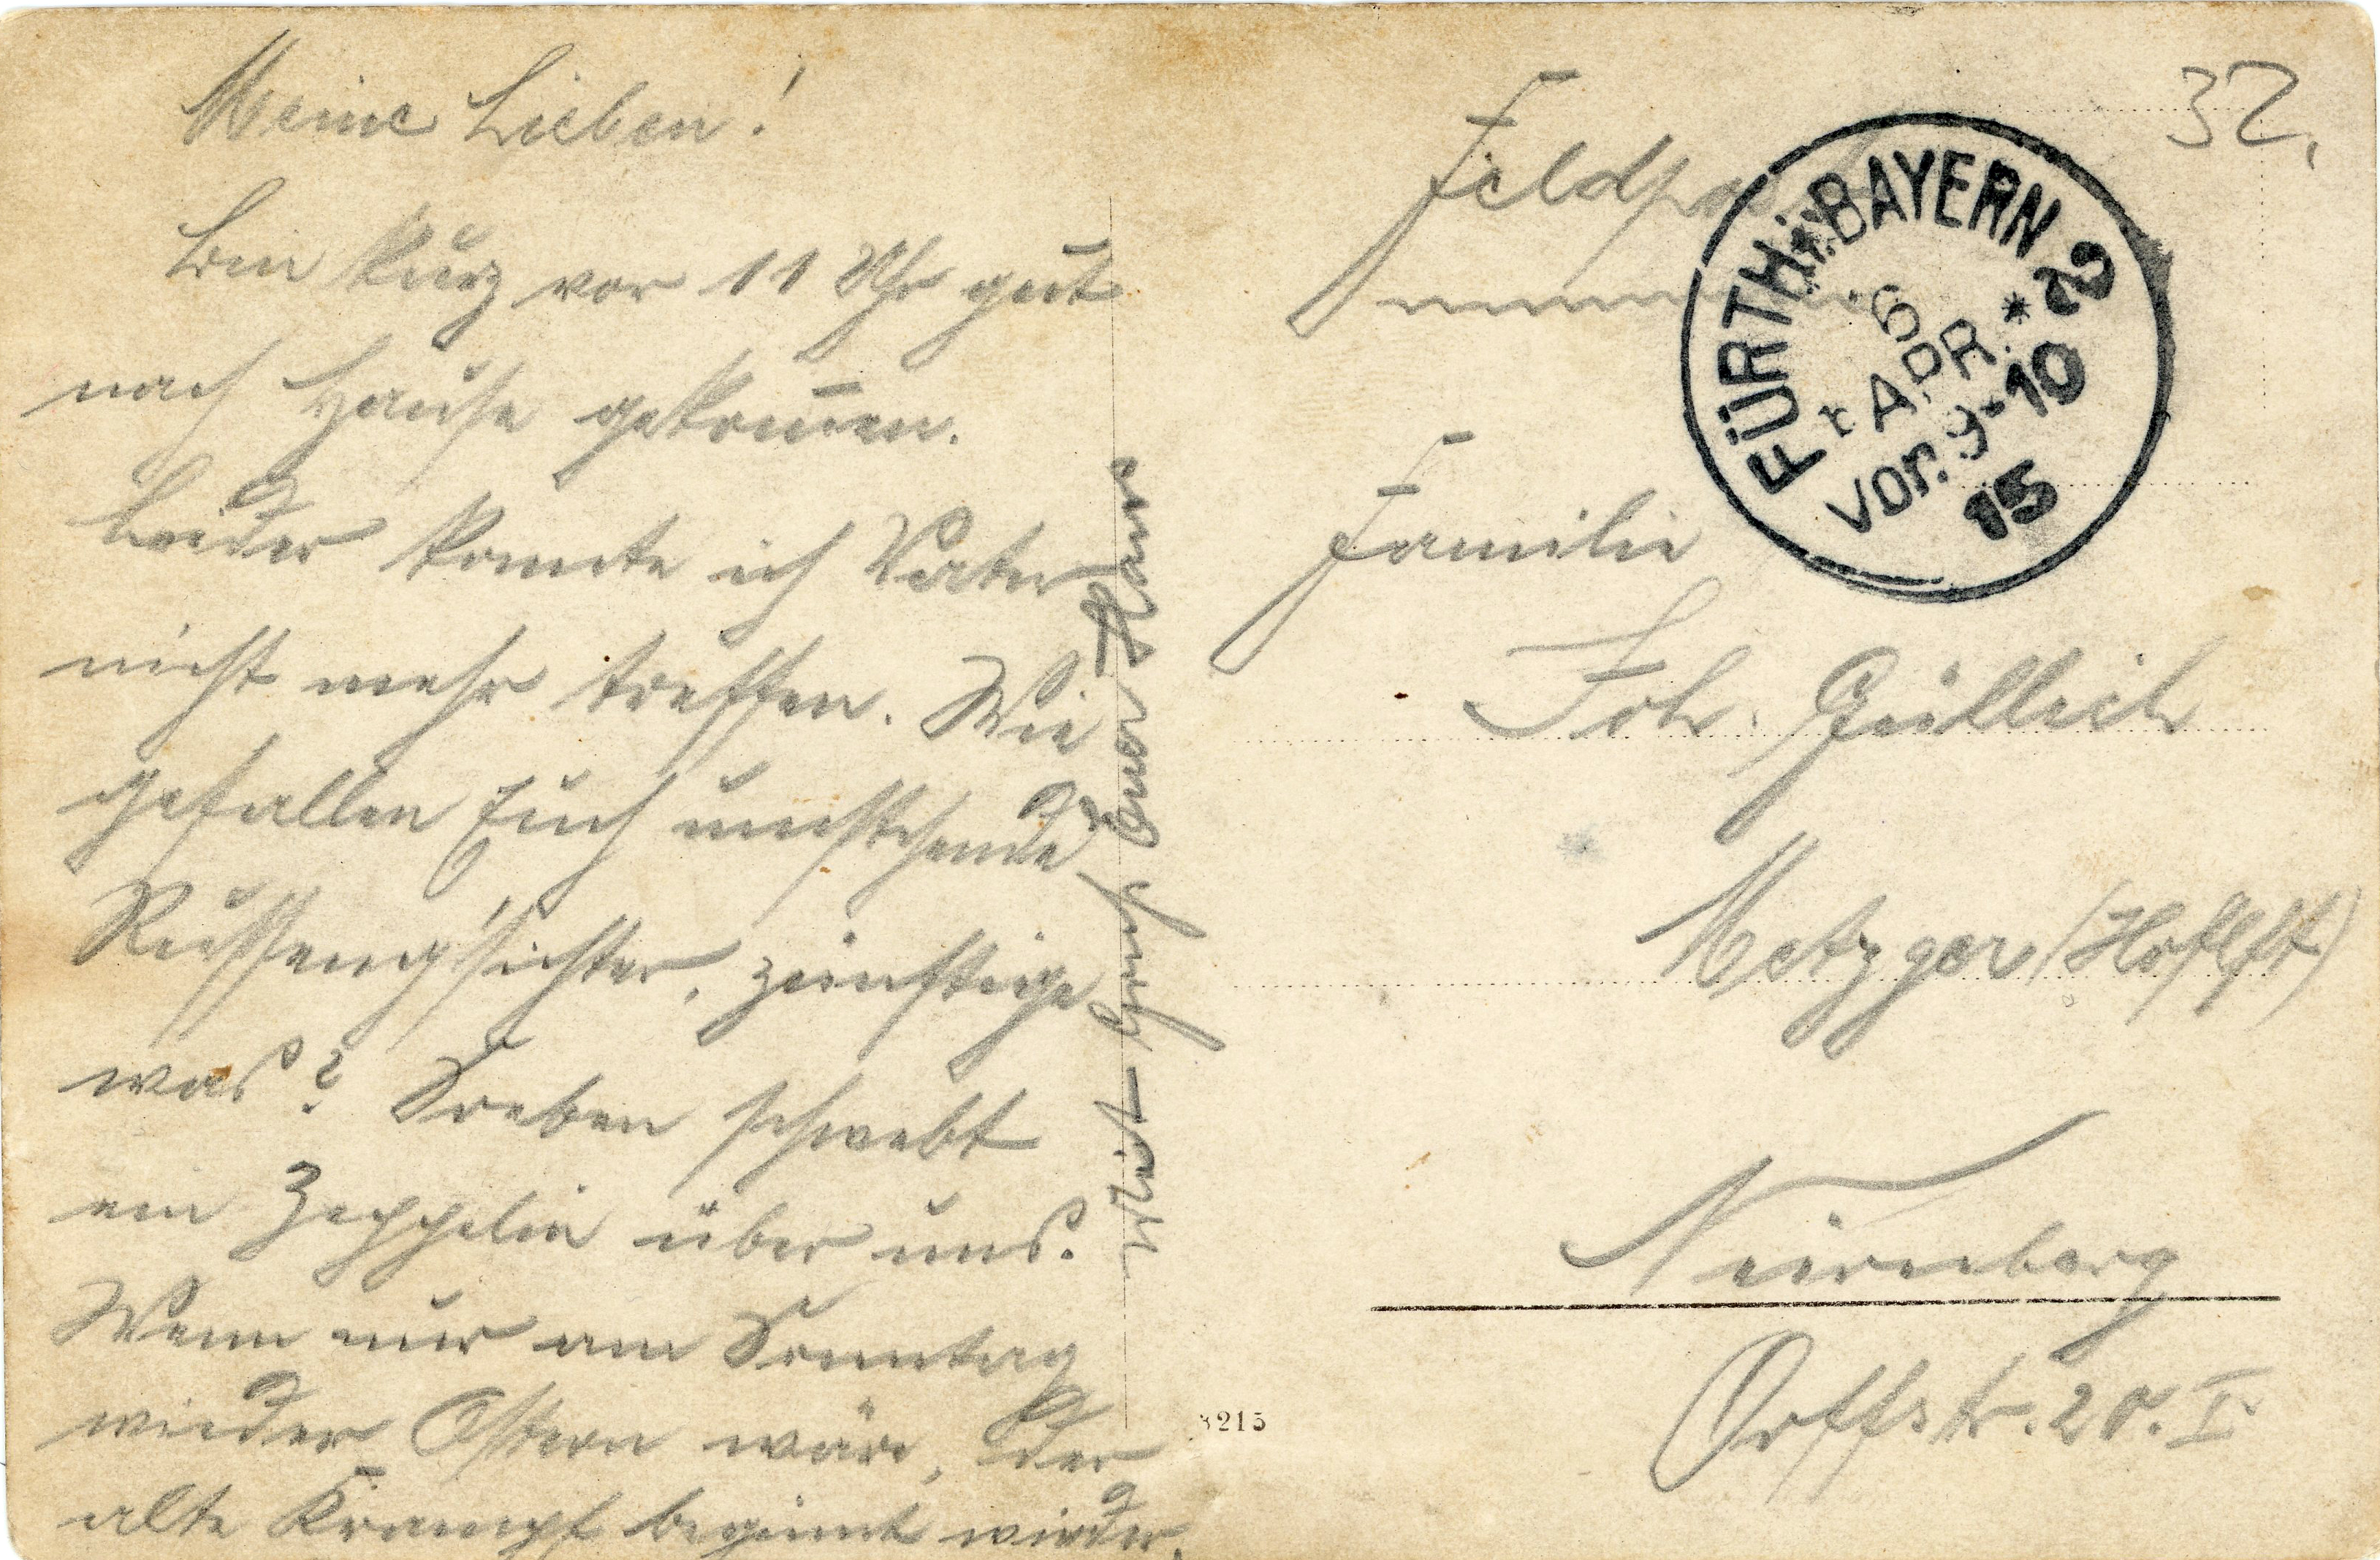 Meine Lieben!
Bin kurz vor 11 Uhr gut
nach Hause gekom̄en.
Leider konnte ich Vater
nicht mehr treffen. Wie
gefallen Euch umstehende
Russeng'sichter, zünftige
was? Soeben schwebt
ein Zeppelin über uns.
Wenn nur am Sonntag
wieder Ostern wäre, der
alte Krampf beginnt wieder.
Mit Gruß Euer Hans
32.
Feldpost
FÜRTH i. BAYERN 2
6 APR.
Vor. 9-10
15
Familie
Joh. Güllich
Metzger (Hoflft)
Nürnberg
Orffstr. 20. I.
8215